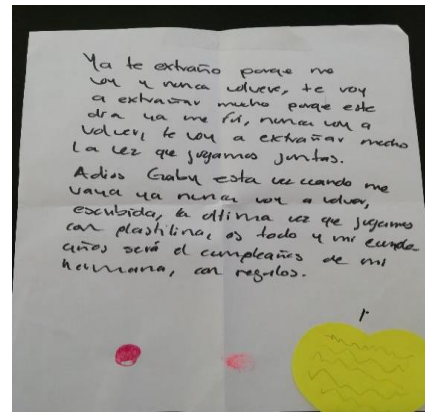 Ya te extraño porque me
voy y nunca volveré, te voy
a extrañar mucho porque este
día ya me fui, nunca voy a
volver, te voy a extrañar mucho
la vez que jugamos juntas.
Adios Gaby esta vez cuando me
vaya ya nunca voy a volver,
escubida, la última vez que jugamos
con plastilina, es todo y mi cumple-
años será el cumpleaños de mi
hermana, con regalos.